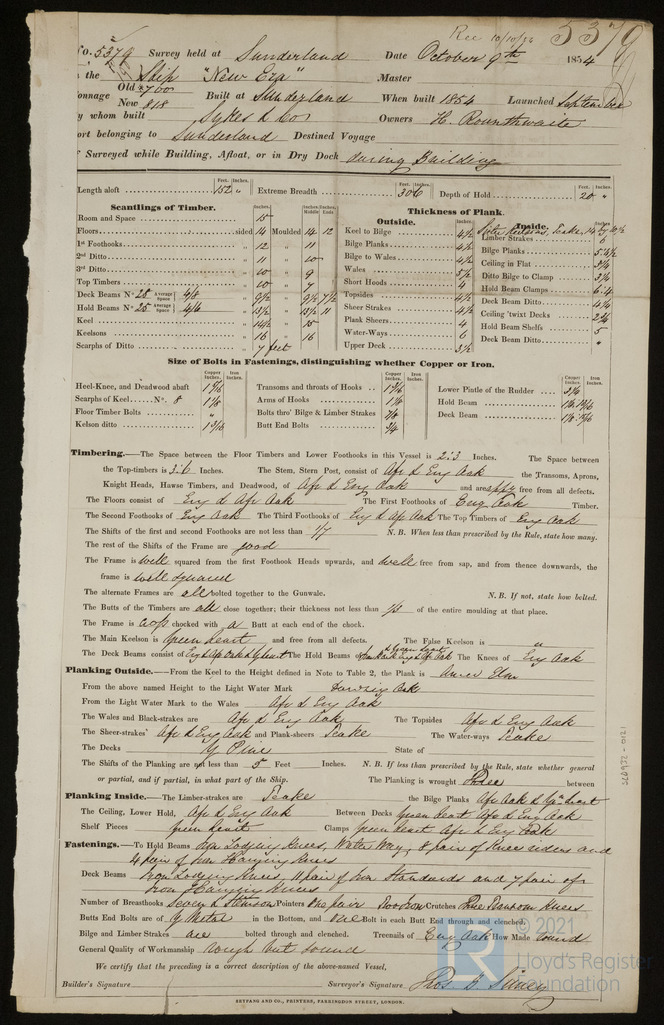 Rec 10/10/54
5379
No. 5379 Survey held at Sunderland Date October 9th 1854
the Ship "New Era" Master
Tonnage Old 760 New 818 Built at Sunderland When built 1854 Launched September
By whom built Sykes & Co Owners H. Rounthwaite
Port belonging to Sunderland Destined Voyage
If Surveyed while Building, Afloat, or in Dry Dock during Building
Feet. Inches. Feet. Inches. Feet. Inches.
Length aloft 152 " Extreme Breadth 30 6 Depth of Hold 20 "
Scantlings of Timber.
Inches. Inches Middle Inches Ends
Room and Space 15
Floors sided 14 Moulded 14 12
1st Foothooks " 12 " 11
2nd Ditto " 11 " 10
3rd Ditto " 10 " 9
Top Timbers " 10 " 7
Deck Beams No. 28 Average Space 4/8 " 9½ " 9½ 7½
Hold Beams No. 25 Average Space 4/6 " 13½ " 13½ 11
Keel " 14½ " 15
Keelsons " 16 " 16
Scarphs of Ditto 7 feet
Thickness of Plank.
Outside.
Keel to Bilge 4½
Bilge Planks 4½
Bilge to Wales 4½
Wales 5½
Short Hoods 4
Topsides 4½
Sheer Strakes 4½
Plank Sheers 4
Water-Ways 6
Upper Deck 3½
Inside.
Limber Strakes 6
Bilge Planks
Ceiling in Flat
Ditto Bilge to Clamp
Hold Beam Clamps
Deck Beam Ditto
Ceiling 'twixt Decks
Hold Beam Shelfs 5
Deck Beam Ditto "
Size of Bolts in Fastenings, distinguishing whether Copper or Iron.
Copper Inches. Iron Inches. Copper Inches. Iron Inches. Copper Inches. Iron Inches.
Heel-Knee, and Deadwood abaft
Scarphs of Keel No. 8 1⅛
Floor Timber Bolts "
Kelson ditto
Transoms and throats of Hooks
Arms of Hooks
Bolts thro' Bilge & Limber Strakes 7/8
Butt End Bolts 3/4
Lower Pintle of the Rudder
Hold Beam
Deck Beam
Timbering.—The Space between the Floor Timbers and Lower Foothooks in this Vessel is 2:3 Inches. The Space between
the Top-timbers is 3:6 Inches. The Stem, Stern Post, consist of Afr & Eng Oak the Transoms, Aprons,
Knight Heads, Hawse Timbers, and Deadwood, of Afr & Eng Oak and are free from all defects.
The Floors consist of Eng & Afr Oak The First Foothooks of Eng Oak Timber.
The Second Foothooks of Eng Oak The Third Foothooks of Eng & Afr Oak The Top Timbers of Eng Oak
The Shifts of the first and second Foothooks are not less than 1/7 N. B. When less than prescribed by the Rule, state how many.
The rest of the Shifts of the Frame are good
The Frame is well squared from the first Foothook Heads upwards, and well free from sap, and from thence downwards, the
frame is well squared
The alternate Frames are all bolted together to the Gunwale. N. B. If not, state how bolted.
The Butts of the Timbers are all close together; their thickness not less than 1/3 of the entire moulding at that place.
The Frame is chocked with a Butt at each end of the chock.
The Main Keelson is green heart and free from all defects. The False Keelson is "
The Deck Beams consist of Eng & Afr Oak & G heart The Hold Beams of The Knees of Eng Oak
Planking Outside.—From the Keel to the Height defined in Note to Table 2, the Plank is Amer Elm
From the above named Height to the Light Water Mark Danzig Oak
From the Light Water Mark to the Wales Afr & Eng Oak
The Wales and Black-strakes are Afr & Eng Oak The Topsides Afr & Eng Oak
The Sheer-strakes' Afr & Eng Oak and Plank-sheers Teake The Water-ways Teake
The Decks Y Pine State of
The Shifts of the Planking are not less than 5 Feet Inches. N. B. If less than prescribed by the Rule, state whether general
or partial, and if partial, in what part of the Ship. The Planking is wrought three between
Planking Inside.—The Limber-strakes are Teake the Bilge Planks Afr Oak & Gn heart
The Ceiling, Lower Hold, Afr & Eng Oak Between Decks green heart Afr & Eng Oak
Shelf Pieces green heart Clamps green heart Afr & Eng Oak
Fastenings.—To Hold Beams Iron Lodging Knees, Water Way, 8 pair of Knees riders and
4 pair of Iron Hanging Knees
Deck Beams Iron Lodging Knees, 11 pair of Iron Standards and 7 pair of
Iron Hanging Knees
Number of Breasthooks Seven & Stemson Pointers One pair Crutches Transom Knees
Butts End Bolts are of Y Metal in the Bottom, and One Bolt in each Butt End through and clenched.
Bilge and Limber Strakes are bolted through and clenched. Treenails of Eng Oak How Made turned
General Quality of Workmanship rough but sound
We certify that the preceding is a correct description of the above-named Vessel,
Builder's Signature Surveyor's Signature Thos. B. Simey
SEYFANG AND CO., PRINTERS, FARRINGDON STREET, LONDON.
© 2021
LR
Lloyd's Register
Foundation